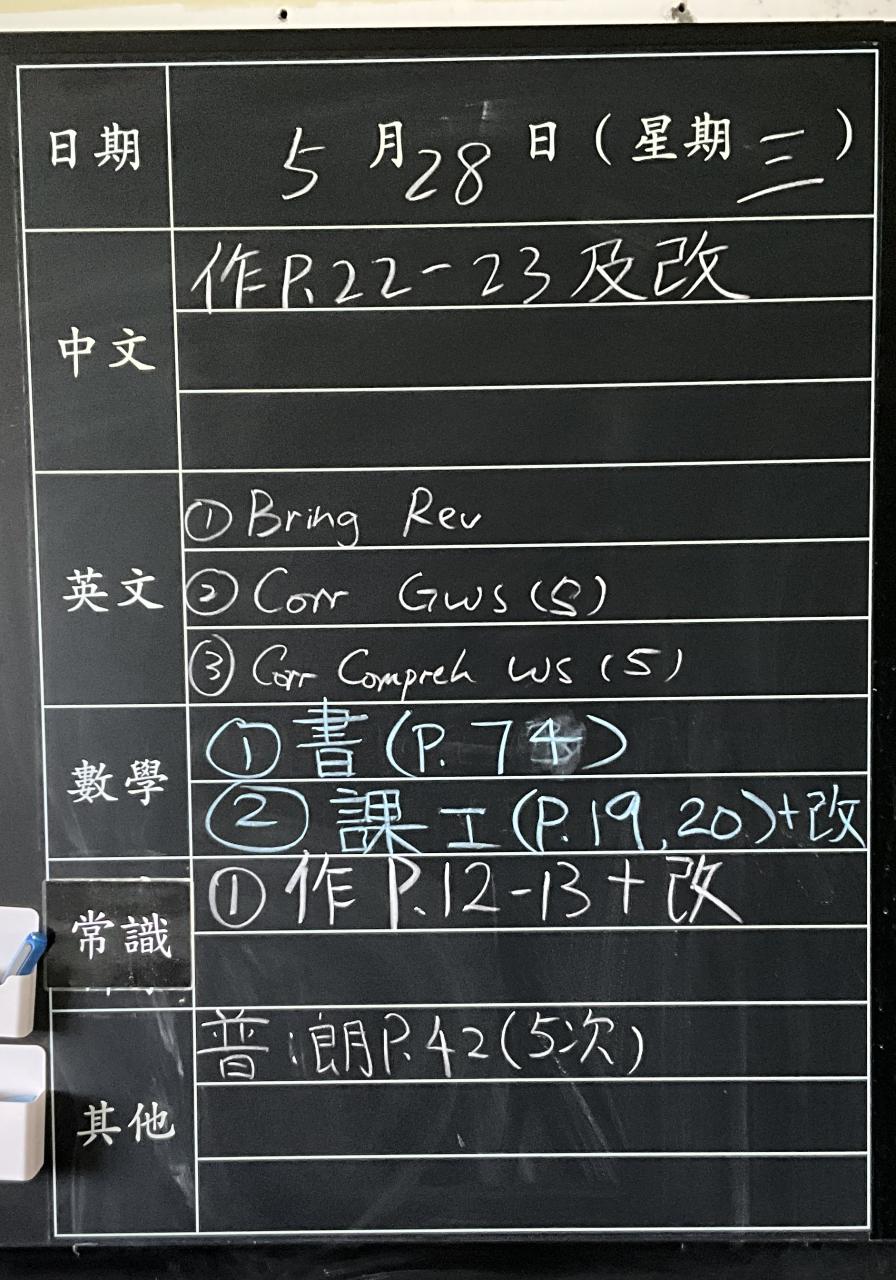 日期 5月28日(星期三)
中文 作P.22-23及改
英文
① Bring Rev
② Corr GWS (5)
③ Corr Compreh WS (5)
數學
① 書(P.74)
② 課工(P.19,20)+改
常識
① 作P.12-13+改
其他
普:朗P.42(5次)